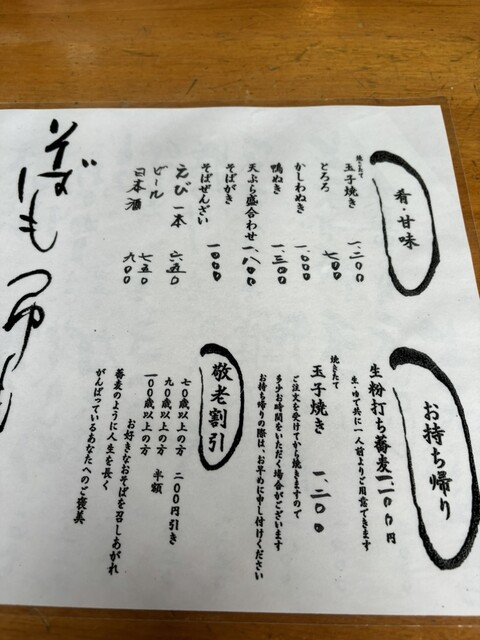 肴・甘味
焼きたて
玉子焼き 一、二〇〇
とろろ 七〇〇
かしわぬき 一、〇〇〇
鴨ぬき 一、三〇〇
天ぷら盛合わせ 一、八〇〇
そばがき
そばぜんざい 一〇〇〇
えび一本 六五〇
ビール 七五〇
日本酒 九〇〇
お持ち帰り
生粉打ち蕎麦 一、一〇〇円
生・ゆで共に一人前よりご用意できます
焼きたて
玉子焼き 一、二〇〇
ご注文を受けてから焼きますので
多少お時間をいただく場合がございます
お持ち帰りの際は、お早めに申し付けください
敬老割引
七〇歳以上の方 二〇〇円引き
九〇歳以上の方 半額
一〇〇歳以上の方
お好きなおそばを召しあがれ
蕎麦のように人生を長く
がんばっているあなたへのご褒美